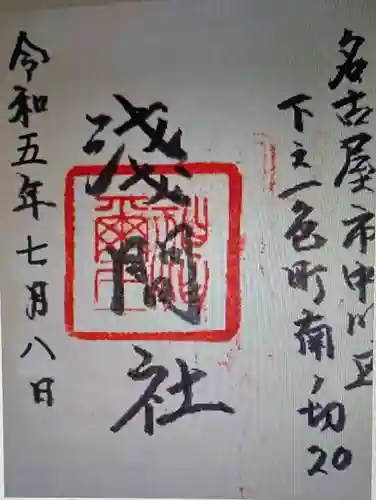 名古屋市中川区
下之一色町南ノ切20
浅間
社
令和五年七月八日